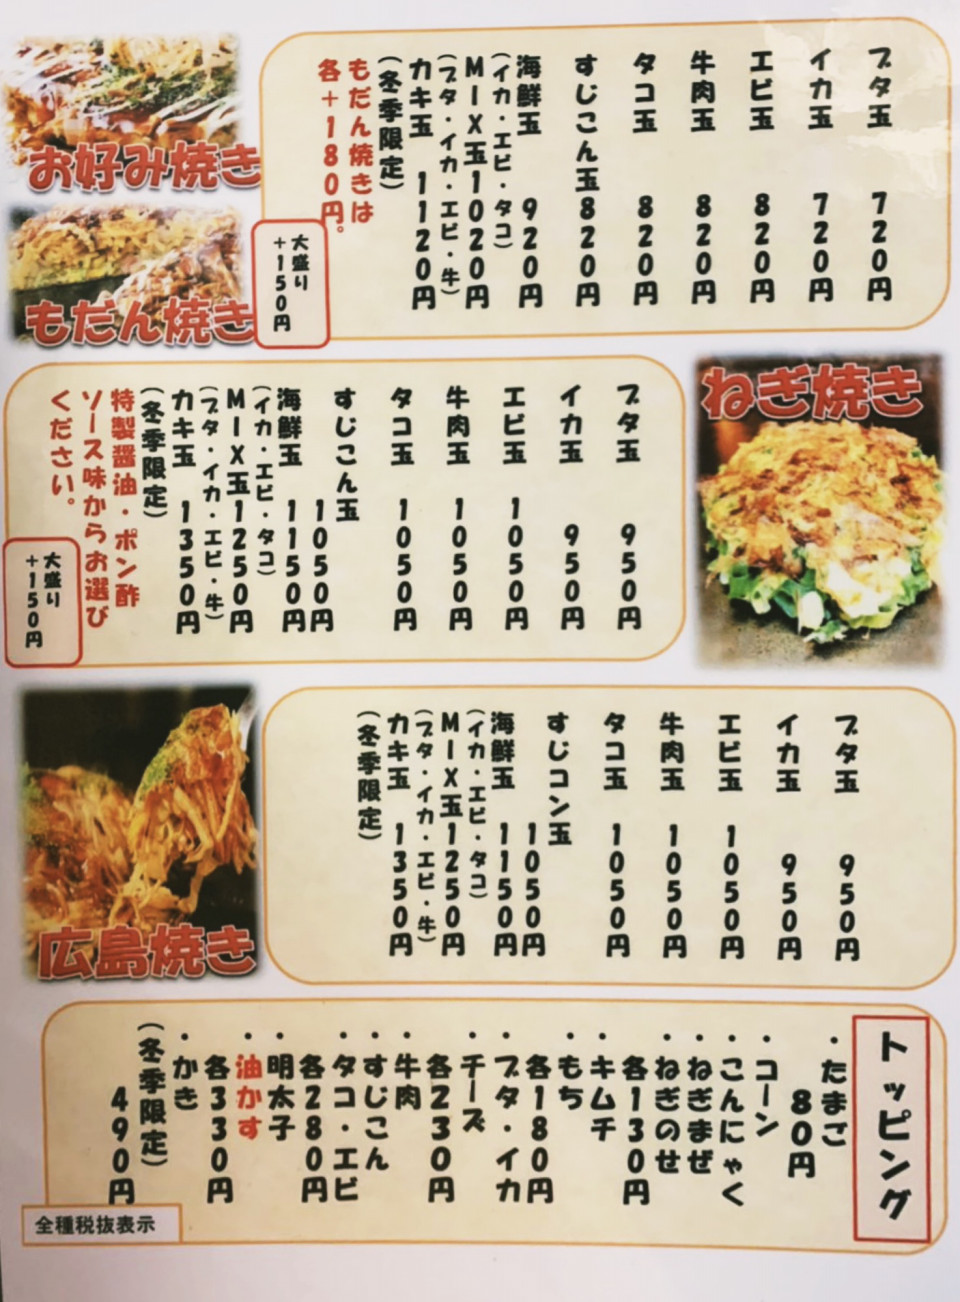 お好み焼き
もだん焼き
ブタ玉 720円
イカ玉 720円
エビ玉 820円
牛肉玉 820円
タコ玉 820円
すじこん玉820円
海鮮玉 920円
(イカ・エビ・タコ)
MIX玉1020円
(ブタ・イカ・エビ・牛)
カキ玉 1120円
(冬季限定)
もだん焼きは
各+180円。
大盛り
+150円
ねぎ焼き
ブタ玉 950円
イカ玉 950円
エビ玉 1050円
牛肉玉 1050円
タコ玉 1050円
すじこん玉
1050円
海鮮玉 1150円
(イカ・エビ・タコ)
MIX玉1250円
(ブタ・イカ・エビ・牛)
カキ玉 1350円
(冬季限定)
特製醤油・ポン酢
ソース味からお選び
ください。
大盛り
+150円
広島焼き
ブタ玉 950円
イカ玉 950円
エビ玉 1050円
牛肉玉 1050円
タコ玉 1050円
すじコン玉
1050円
海鮮玉 1150円
(イカ・エビ・タコ)
MIX玉1250円
(ブタ・イカ・エビ・牛)
カキ玉 1350円
(冬季限定)
トッピング
・たまご
80円
・コーン
・こんにゃく
・ねぎまぜ
・ねぎのせ
各130円
・キムチ
・もち
各180円
・ブタ・イカ
・チーズ
各230円
・牛肉
・すじこん
・タコ・エビ
各280円
・明太子
・油かす
各330円
・かき
(冬季限定)
490円
全種税抜表示